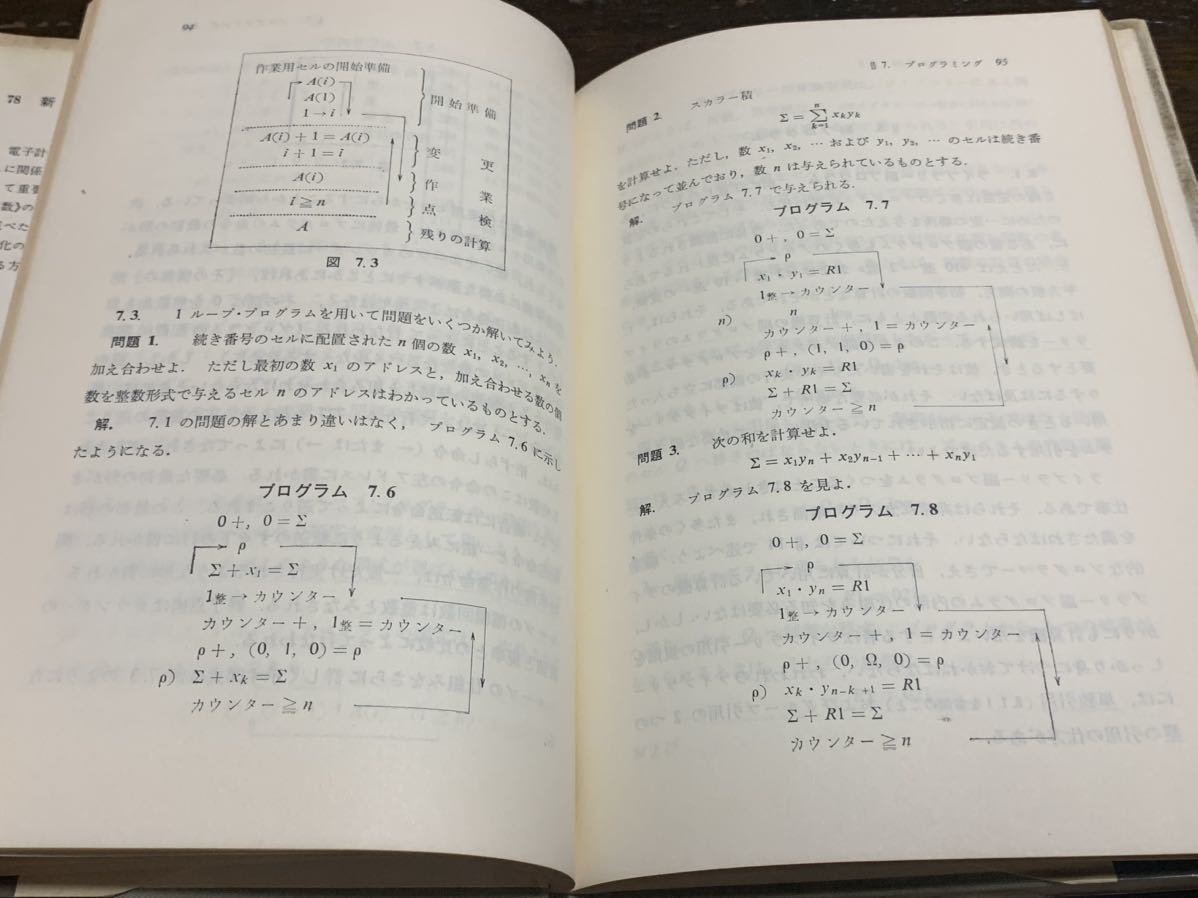 78 新
電子計
に関係
て重要
数》の
べた
化の
る方
94
作業用セルの開始準備
A(i)
A(1)
1→i
開始準備
A(i)+1=A(i)
i+1=i
変更
A(i)
作業
i≧n
点検
A
残りの計算
図 7.3
7.3. 1ループ・プログラムを用いて問題をいくつか解いてみよう.
問題 1. 続き番号のセルに配置された n 個の数 x₁, x₂, …, xₙ を
加え合わせよ. ただし最初の数 x₁ のアドレスと, 加え合わせる数の個
数を整数形式で与えるセル n のアドレスはわかっているものとする.
解. 7.1 の問題の解とあまり違いはなく, プログラム 7.6 に示し
たようになる.
プログラム 7.6
0+, 0=Σ
ρ
Σ+x₁=Σ
1整→カウンター
カウンター+, 1整=カウンター
ρ+, (0, 1, 0)=ρ
ρ) Σ+xₖ=Σ
カウンター≧n
§7. プログラミング 95
問題 2. スカラー積
Σ=∑ₖ₌₁ⁿ xₖyₖ
を計算せよ. ただし, 数 x₁, x₂, … および y₁, y₂, … のセルは続き番
号になって並んでおり, 数 n は与えられているものとする.
解. プログラム 7.7 で与えられる.
プログラム 7.7
0+, 0=Σ
ρ
x₁・y₁=R1
1整→カウンター
n) n
カウンター+, 1=カウンター
ρ+, (1, 1, 0)=ρ
ρ) xₖ・yₖ=R1
Σ+R1=Σ
カウンター≧n
問題 3. 次の和を計算せよ.
Σ=x₁yₙ+x₂yₙ₋₁+…+xₙy₁
解. プログラム 7.8 を見よ.
プログラム 7.8
0+, 0=Σ
ρ
x₁・yₙ=R1
1整→カウンター
カウンター+, 1=カウンター
ρ+, (0, Ω, 0)=ρ
ρ) xₖ・yₙ₋ₖ₊₁=R1
Σ+R1=Σ
カウンター≧n